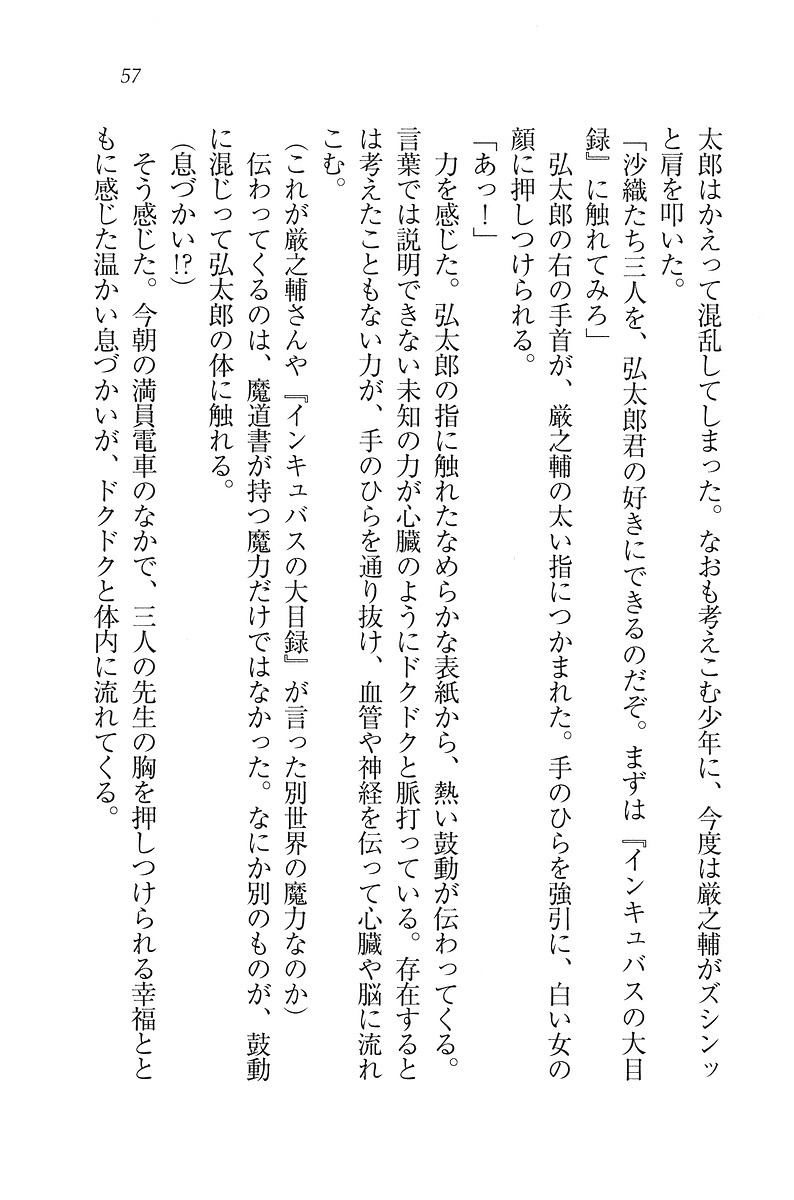 57
太郎はかえって混乱してしまった。なおも考えこむ少年に、今度は厳之輔がズシンッ
と肩を叩いた。
「沙織たち三人を、弘太郎君の好きにできるのだぞ。まずは『インキュバスの大目
録』に触れてみろ」
　弘太郎の右の手首が、厳之輔の太い指につかまれた。手のひらを強引に、白い女の
顔に押しつけられる。
「あっ！」
　力を感じた。弘太郎の指に触れたなめらかな表紙から、熱い鼓動が伝わってくる。
言葉では説明できない未知の力が心臓のようにドクドクと脈打っている。存在すると
は考えたこともない力が、手のひらを通り抜け、血管や神経を伝って心臓や脳に流れ
こむ。
（これが厳之輔さんや『インキュバスの大目録』が言った別世界の魔力なのか）
　伝わってくるのは、魔道書が持つ魔力だけではなかった。なにか別のものが、鼓動
に混じって弘太郎の体に触れる。
（息づかい!?）
　そう感じた。今朝の満員電車のなかで、三人の先生の胸を押しつけられる幸福とと
もに感じた温かい息づかいが、ドクドクと体内に流れてくる。